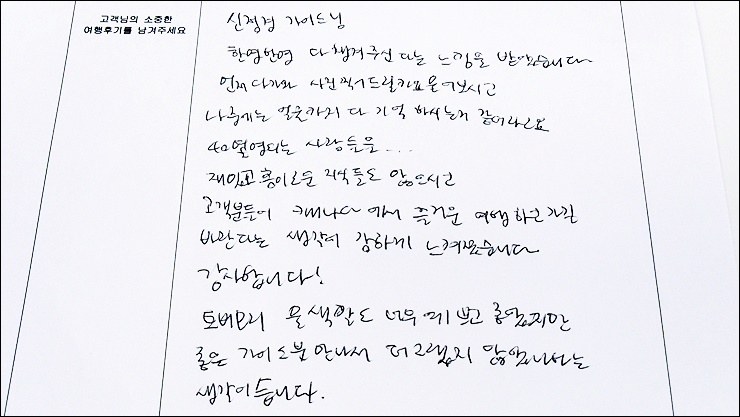 고객님의 소중한
여행후기를 남겨주세요
신정경 가이드님
한명한명 다 챙겨주신다는 느낌을 받았습니다
먼저 다가와 사진찍어드릴까요 물어보시고
나중에는 얼굴까지 다 기억 하시는거 같더라고요
40명정도되는 사람들을...
재밌고 흥미로운 지식들도 많으시고
고객분들이 캐나다에서 즐거운 여행하고가길
바란다는 생각이 강하게 느껴졌습니다
감사합니다!
토버모리 물색깔도 너무 예쁘고 좋았지만
좋은 가이드분 만나서 더 그랬지 않았나하는
생각이듭니다.